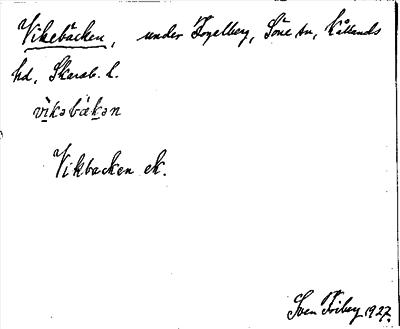 Vikebäcken, under Fogelberg, Söne sn, Kållands
hd, Skarab. l.
vìkəbækən
Vikbacken ek.
Sven Friberg 1927.